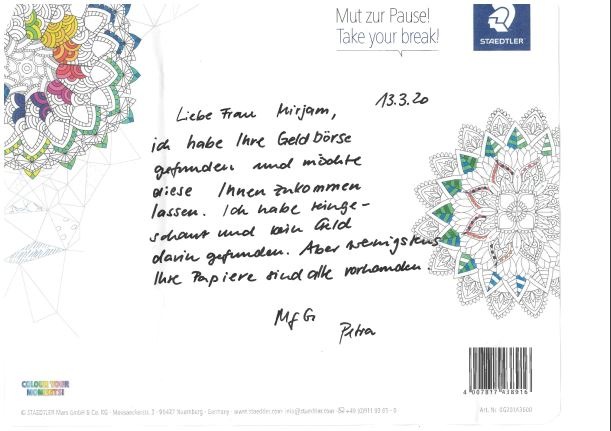 Mut zur Pause!
Take your break!
STAEDTLER
13.3.20
Liebe Frau Mirjam,
ich habe Ihre Geldbörse
gefunden und möchte
diese Ihnen zukommen
lassen. Ich habe reinge-
schaut und kein Geld
darin gefunden. Aber wenigstens
Ihre Papiere sind alle vorhanden.
MfG
Petra
COLOUR YOUR
MOMENTS!
4 007817 438916
© STAEDTLER Mars GmbH & Co. KG - Moosaeckerstr. 3 - 90427 Nuernberg - Germany - www.staedtler.com info@staedtler.com +49 (0)911 93 65 - 0
Art. Nr.